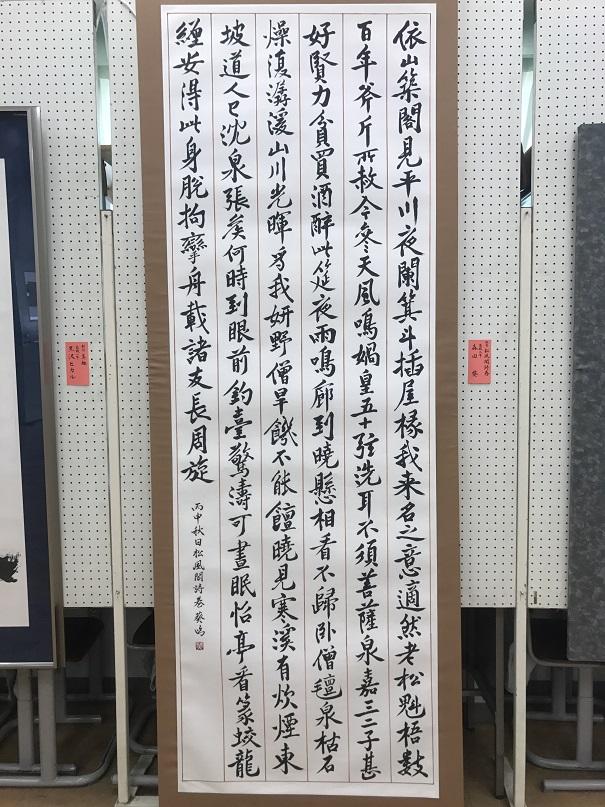 依山築閣見平川夜闌箕斗插屋椽我来名之意適然老松魁梧數
百年斧斤所赦今參天風鳴媧皇五十弦洗耳不須菩薩泉嘉三二子甚
好賢力貧買酒醉此筵夜雨鳴廊到曉懸相看不歸卧僧氊泉枯石
燥復潺湲山川光暉為我妍野僧旱饑不能饘曉見寒溪有炊煙東
坡道人已沈泉張侯何時到眼前釣臺驚濤可晝眠怡亭看篆蛟龍
纏安得此身脫拘攣舟載諸友長周旋
丙申秋日松風閣詩卷葵
松風閣詩巻
森田 葵